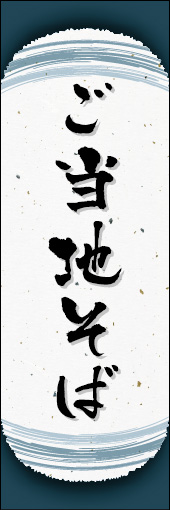 ご当地そば